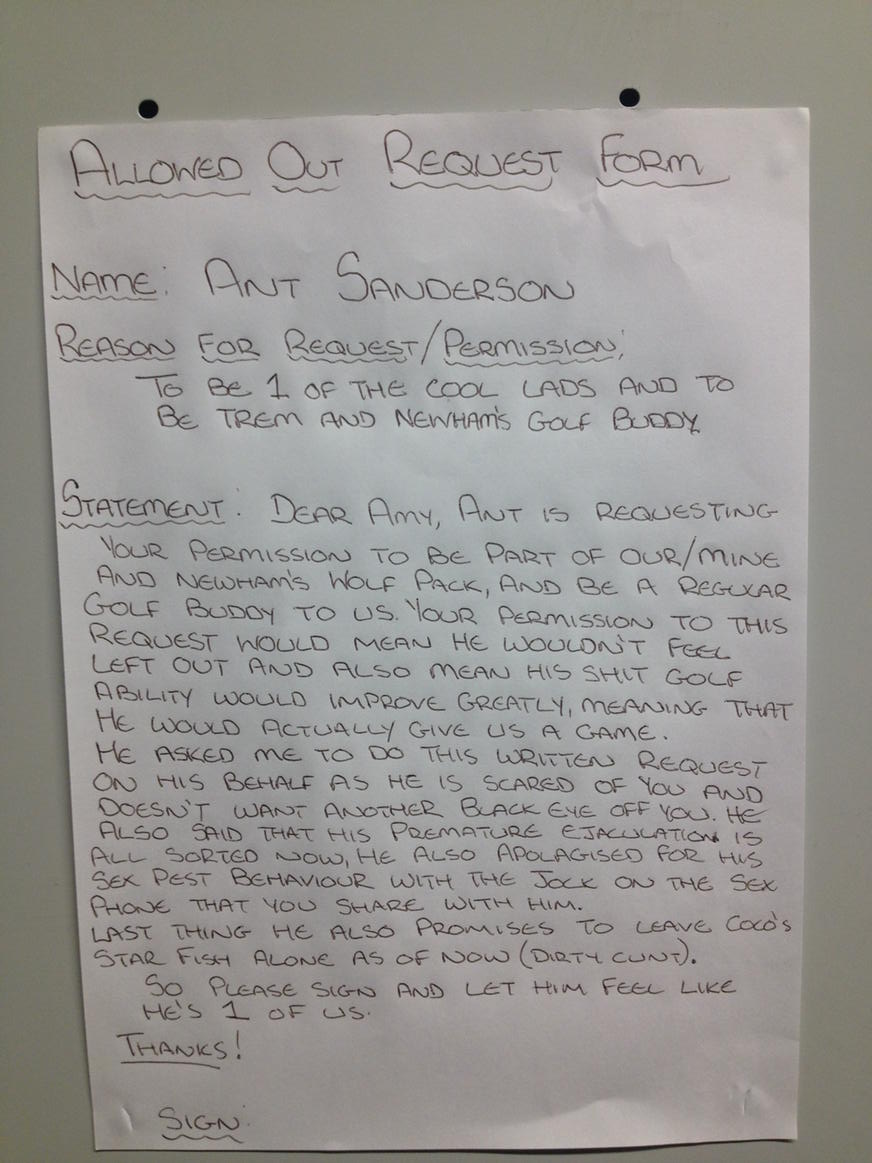 ALLOWED OUT REQUEST FORM
NAME: ANT SANDERSON
REASON FOR REQUEST/PERMISSION;
TO BE 1 OF THE COOL LADS AND TO
BE TREM AND NEWHAM'S GOLF BUDDY
STATEMENT: DEAR AMY, ANT IS REQUESTING
YOUR PERMISSION TO BE PART OF OUR/MINE
AND NEWHAM'S WOLF PACK, AND BE A REGULAR
GOLF BUDDY TO US. YOUR PERMISSION TO THIS
REQUEST WOULD MEAN HE WOULDN'T FEEL
LEFT OUT AND ALSO MEAN HIS SHIT GOLF
ABILITY WOULD IMPROVE GREATLY, MEANING THAT
HE WOULD ACTUALLY GIVE US A GAME.
HE ASKED ME TO DO THIS WRITTEN REQUEST
ON HIS BEHALF AS HE IS SCARED OF YOU AND
DOESN'T WANT ANOTHER BLACK EYE OFF YOU. HE
ALSO SAID THAT HIS PREMATURE EJACULATION IS
ALL SORTED NOW, HE ALSO APOLAGISED FOR HIS
SEX PEST BEHAVIOUR WITH THE JOCK ON THE SEX
PHONE THAT YOU SHARE WITH HIM.
LAST THING HE ALSO PROMISES TO LEAVE COCO'S
STAR FISH ALONE AS OF NOW (DIRTY CUNT).
SO PLEASE SIGN AND LET HIM FEEL LIKE
HE'S 1 OF US.
THANKS!
SIGN: